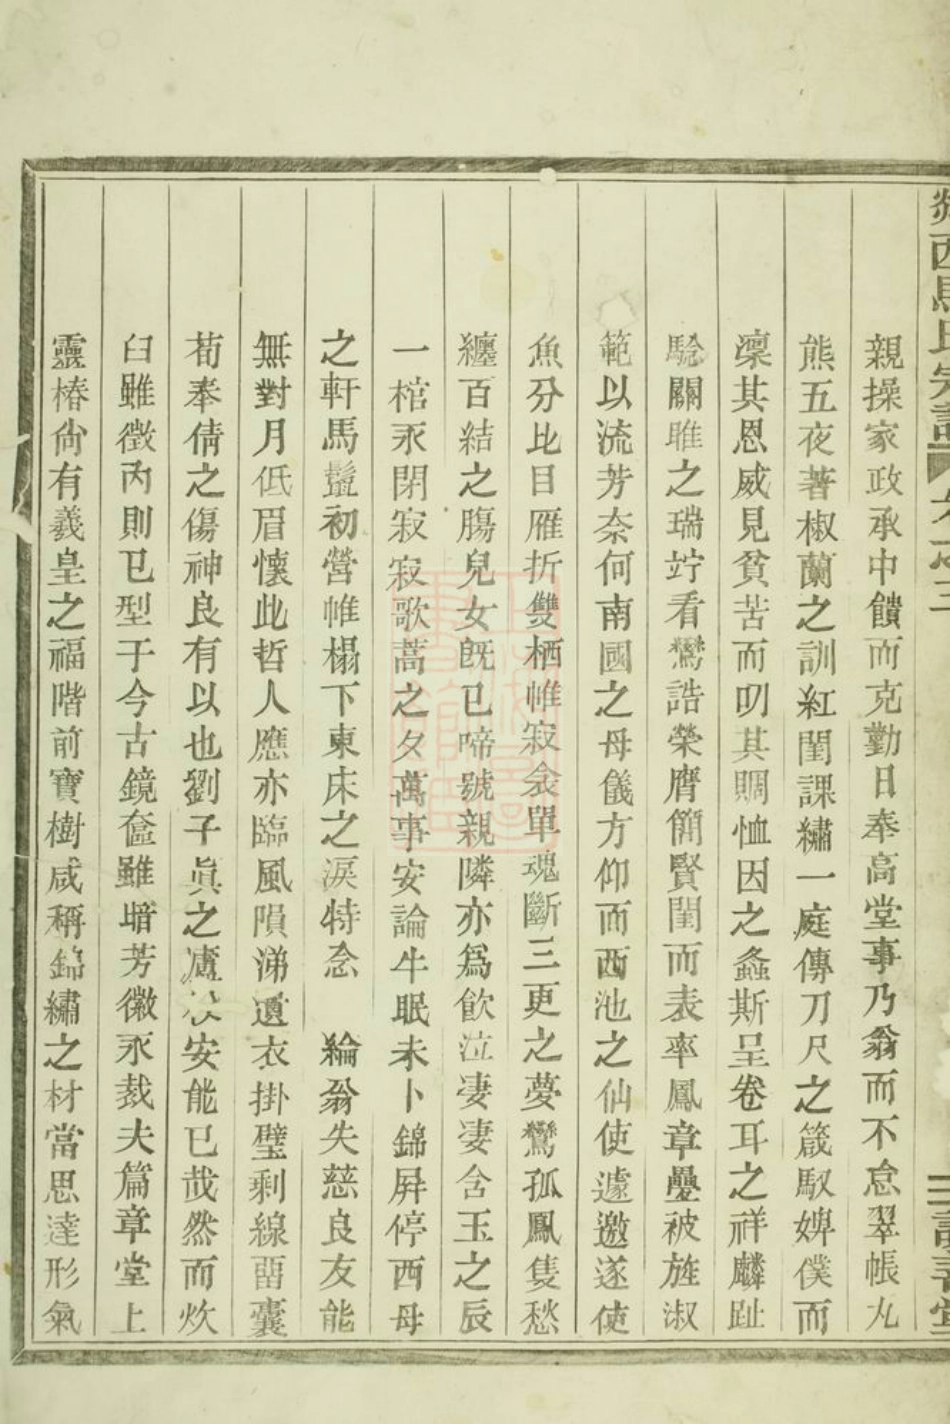 西馬氏宗譜
親操家政承中饋而克勤日奉高堂事乃翁而不怠翠帳丸
熊五夜著椒蘭之訓紅閨課繡一庭傳刀尺之箴馭婢僕而
凜其恩威見貧苦而叨其賙恤因之螽斯呈卷耳之祥麟趾
騐關雎之瑞竚看鸞誥榮膺簡賢閨而表率鳳章疊被旌淑
範以流芳奈何南國之母儀方仰而西池之仙使遽邀遂使
魚分比目雁折雙栖帷寂衾單魂斷三更之夢鸞孤鳳隻愁
纏百結之腸兒女旣已啼號親隣亦爲飲泣凄凄含玉之辰
一棺永閉寂寂歌蒿之夕萬事安論牛眠未卜錦屏停西母
之軒馬鬣初營帷榻下東床之淚特念　綸翁失慈良友能
無對月低眉懷此哲人應亦臨風隕涕遺衣掛壁剩線畱囊
荀奉倩之傷神良有以也劉子眞之廬安能已哉然而炊
臼雖徵丙則已型于今古鏡奩雖暗芳徽永裁夫篇章堂上
靈椿尙有羲皇之福階前寶樹咸稱錦繡之材當思達形氣